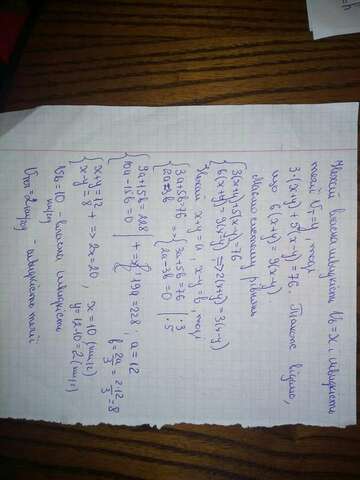 Нехай власна швидкість Vв = x, швидкість
течії Vт = y, тоді
3·(x+y) + 5(x-y) = 76. Також відомо,
що 6(x+y) = 9(x-y)
Маємо систему рівнянь
{ 3(x+y)+5(x-y)=76
{ 6(x+y)=9(x-y) => 2(x+y)=3(x-y)
Нехай x+y=a, x-y=b, тоді
{ 3a+5b=76 => { 3a+5b=76 | ·3
{ 2a=3b { 2a-3b=0 | ·5
{ 9a+15b=228
{ 10a-15b=0 | + => 19a=228; a=12
b=2a/3=2·12/3=8
{ x+y=12
{ x-y=8 + => 2x=20; x=10 (км/г)
y=12-10=2 (км/г)
Vв=10 - власна швидкість
Vт=2 км/г - швидкість течії